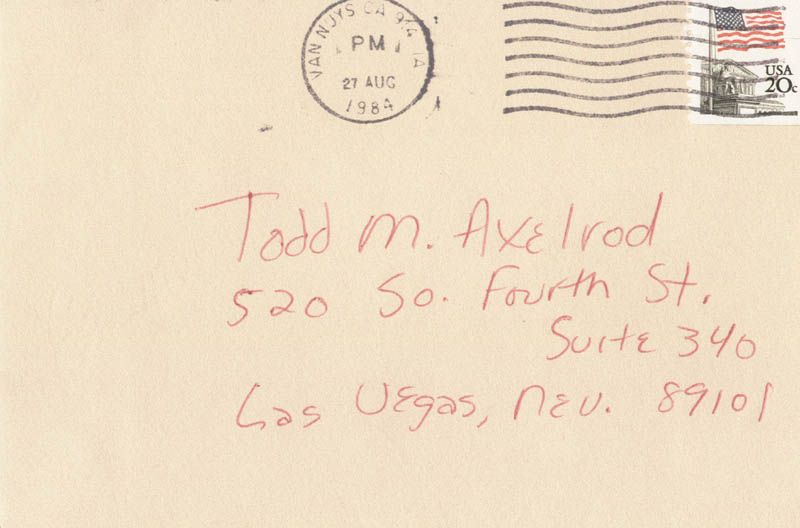 VAN NUYS CA 914 1A
PM
27 AUG
1984
USA
20c
Todd M. Axelrod
520 So. Fourth St.
Suite 340
Las Vegas, Nev. 89101